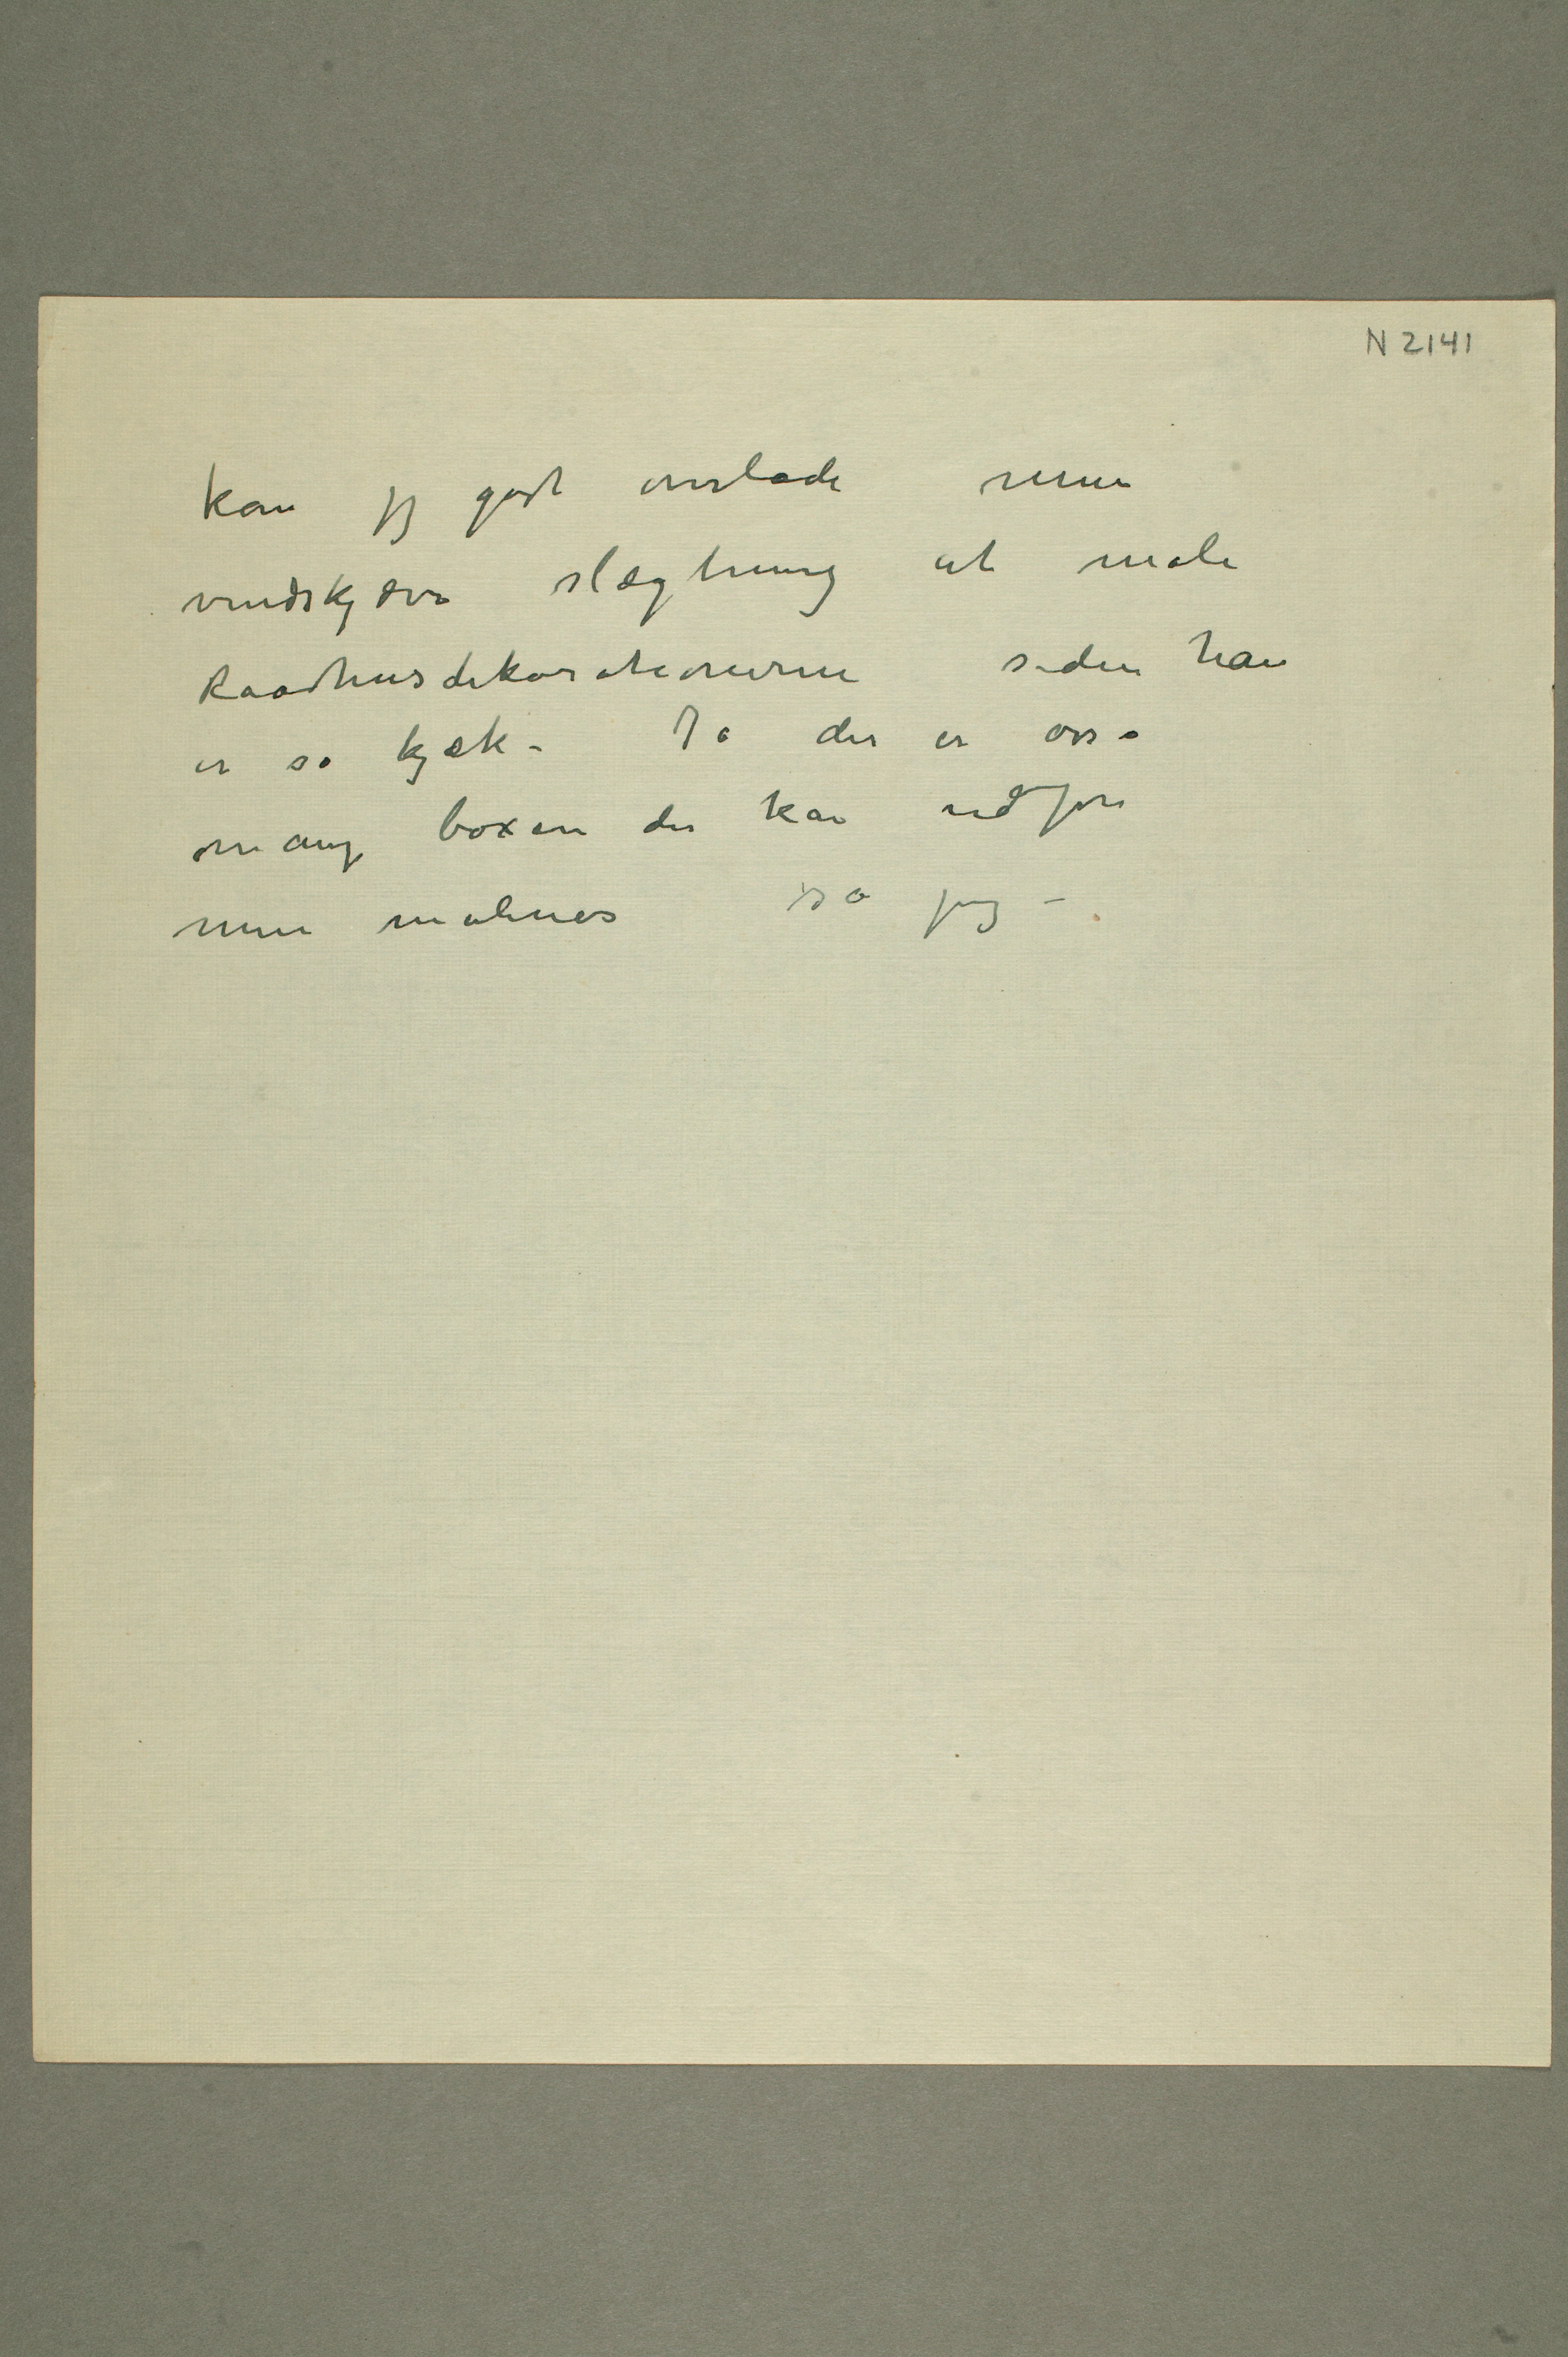 N 2141
kan jeg godt overlade min
vindskjæve slægtning at male
Raadhusdekorationerne siden han
er så kjæk – Ja der er osså
mange boxere der kan udføre
min malines sa jeg –